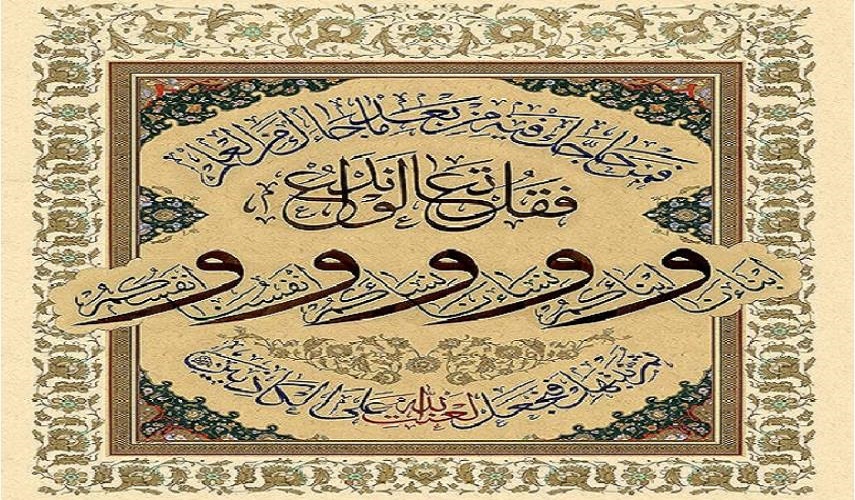 فمن حاجك فيه من بعد ما جاءك من العلم
فقل تعالوا ندع
ابناءنا و ابناءكم و نساءنا و نساءكم و انفسنا و انفسكم
ثم نبتهل فنجعل لعنت الله على الكاذبين